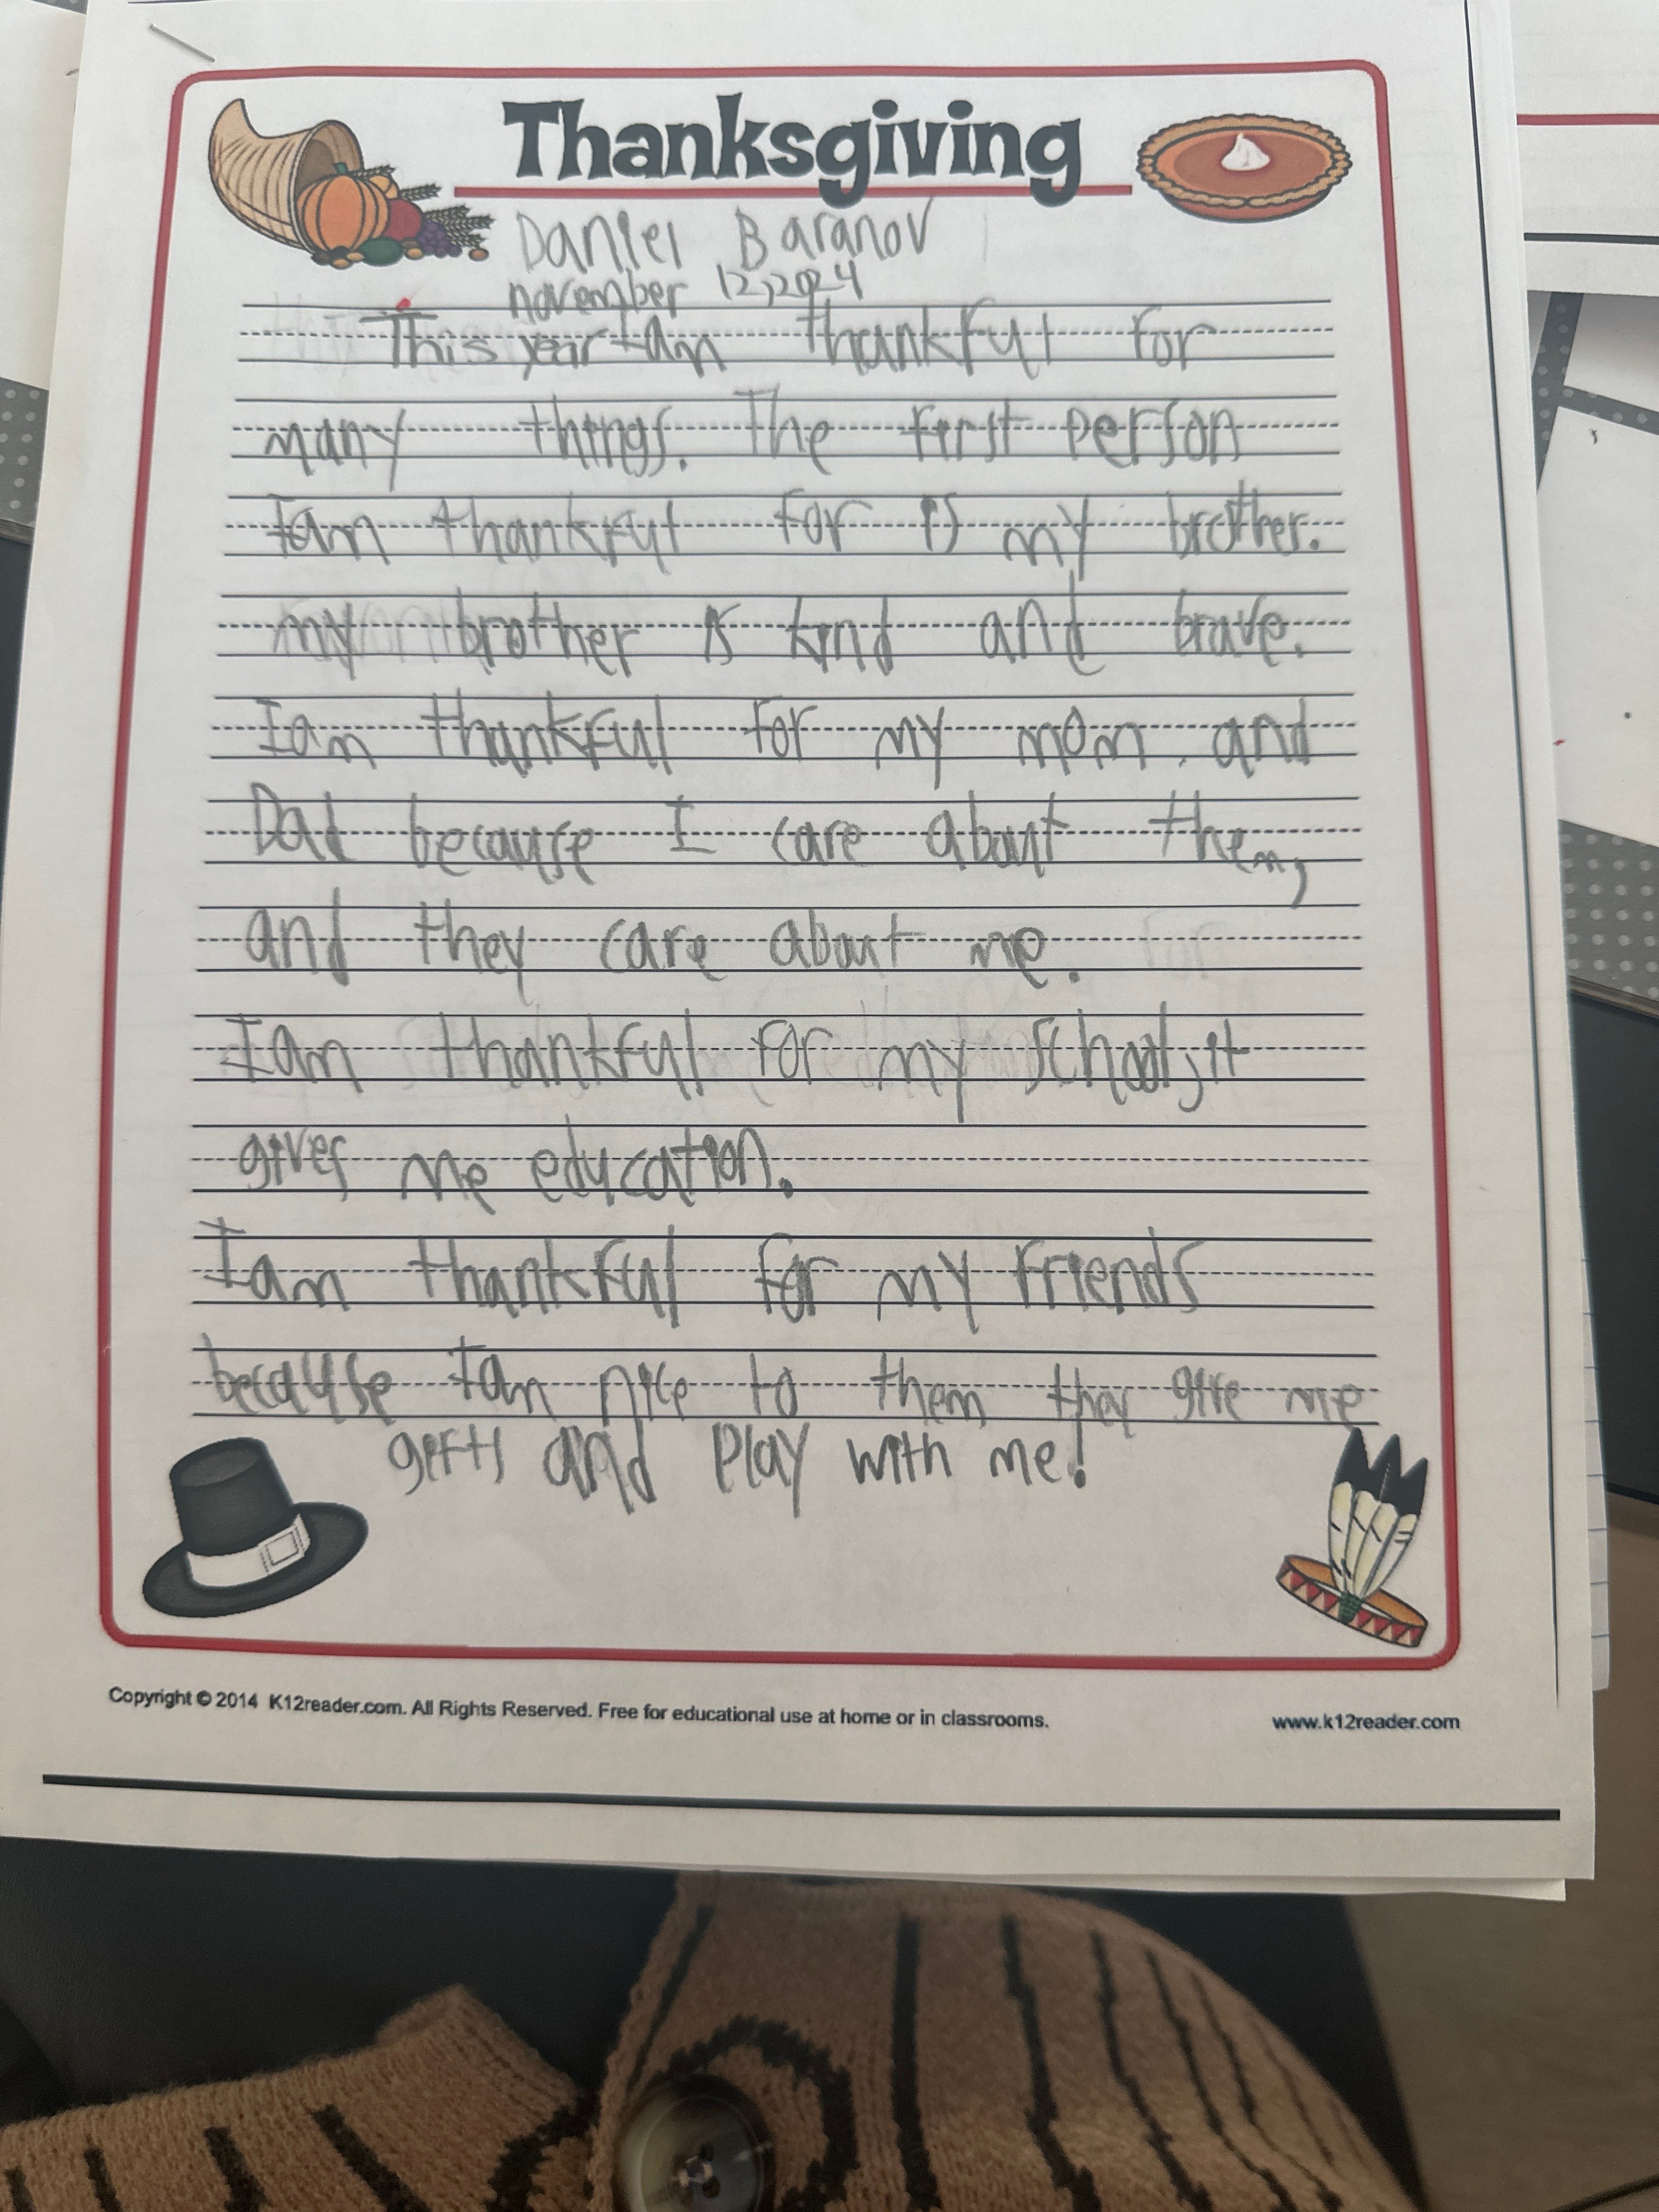 Thanksgiving
Daniel Baranov
november 12, 2024
This year I am thankful for
many things. The first person
I am thankful for is my brother.
my brother is kind and brave.
I am thankful for my mom and
Dad because I care about them,
and they care about me.
I am thankful for my school, it
gives me education.
I am thankful for my friends
because I am nice to them they give me
gifts and play with me!
Copyright © 2014 K12reader.com. All Rights Reserved. Free for educational use at home or in classrooms.
www.k12reader.com